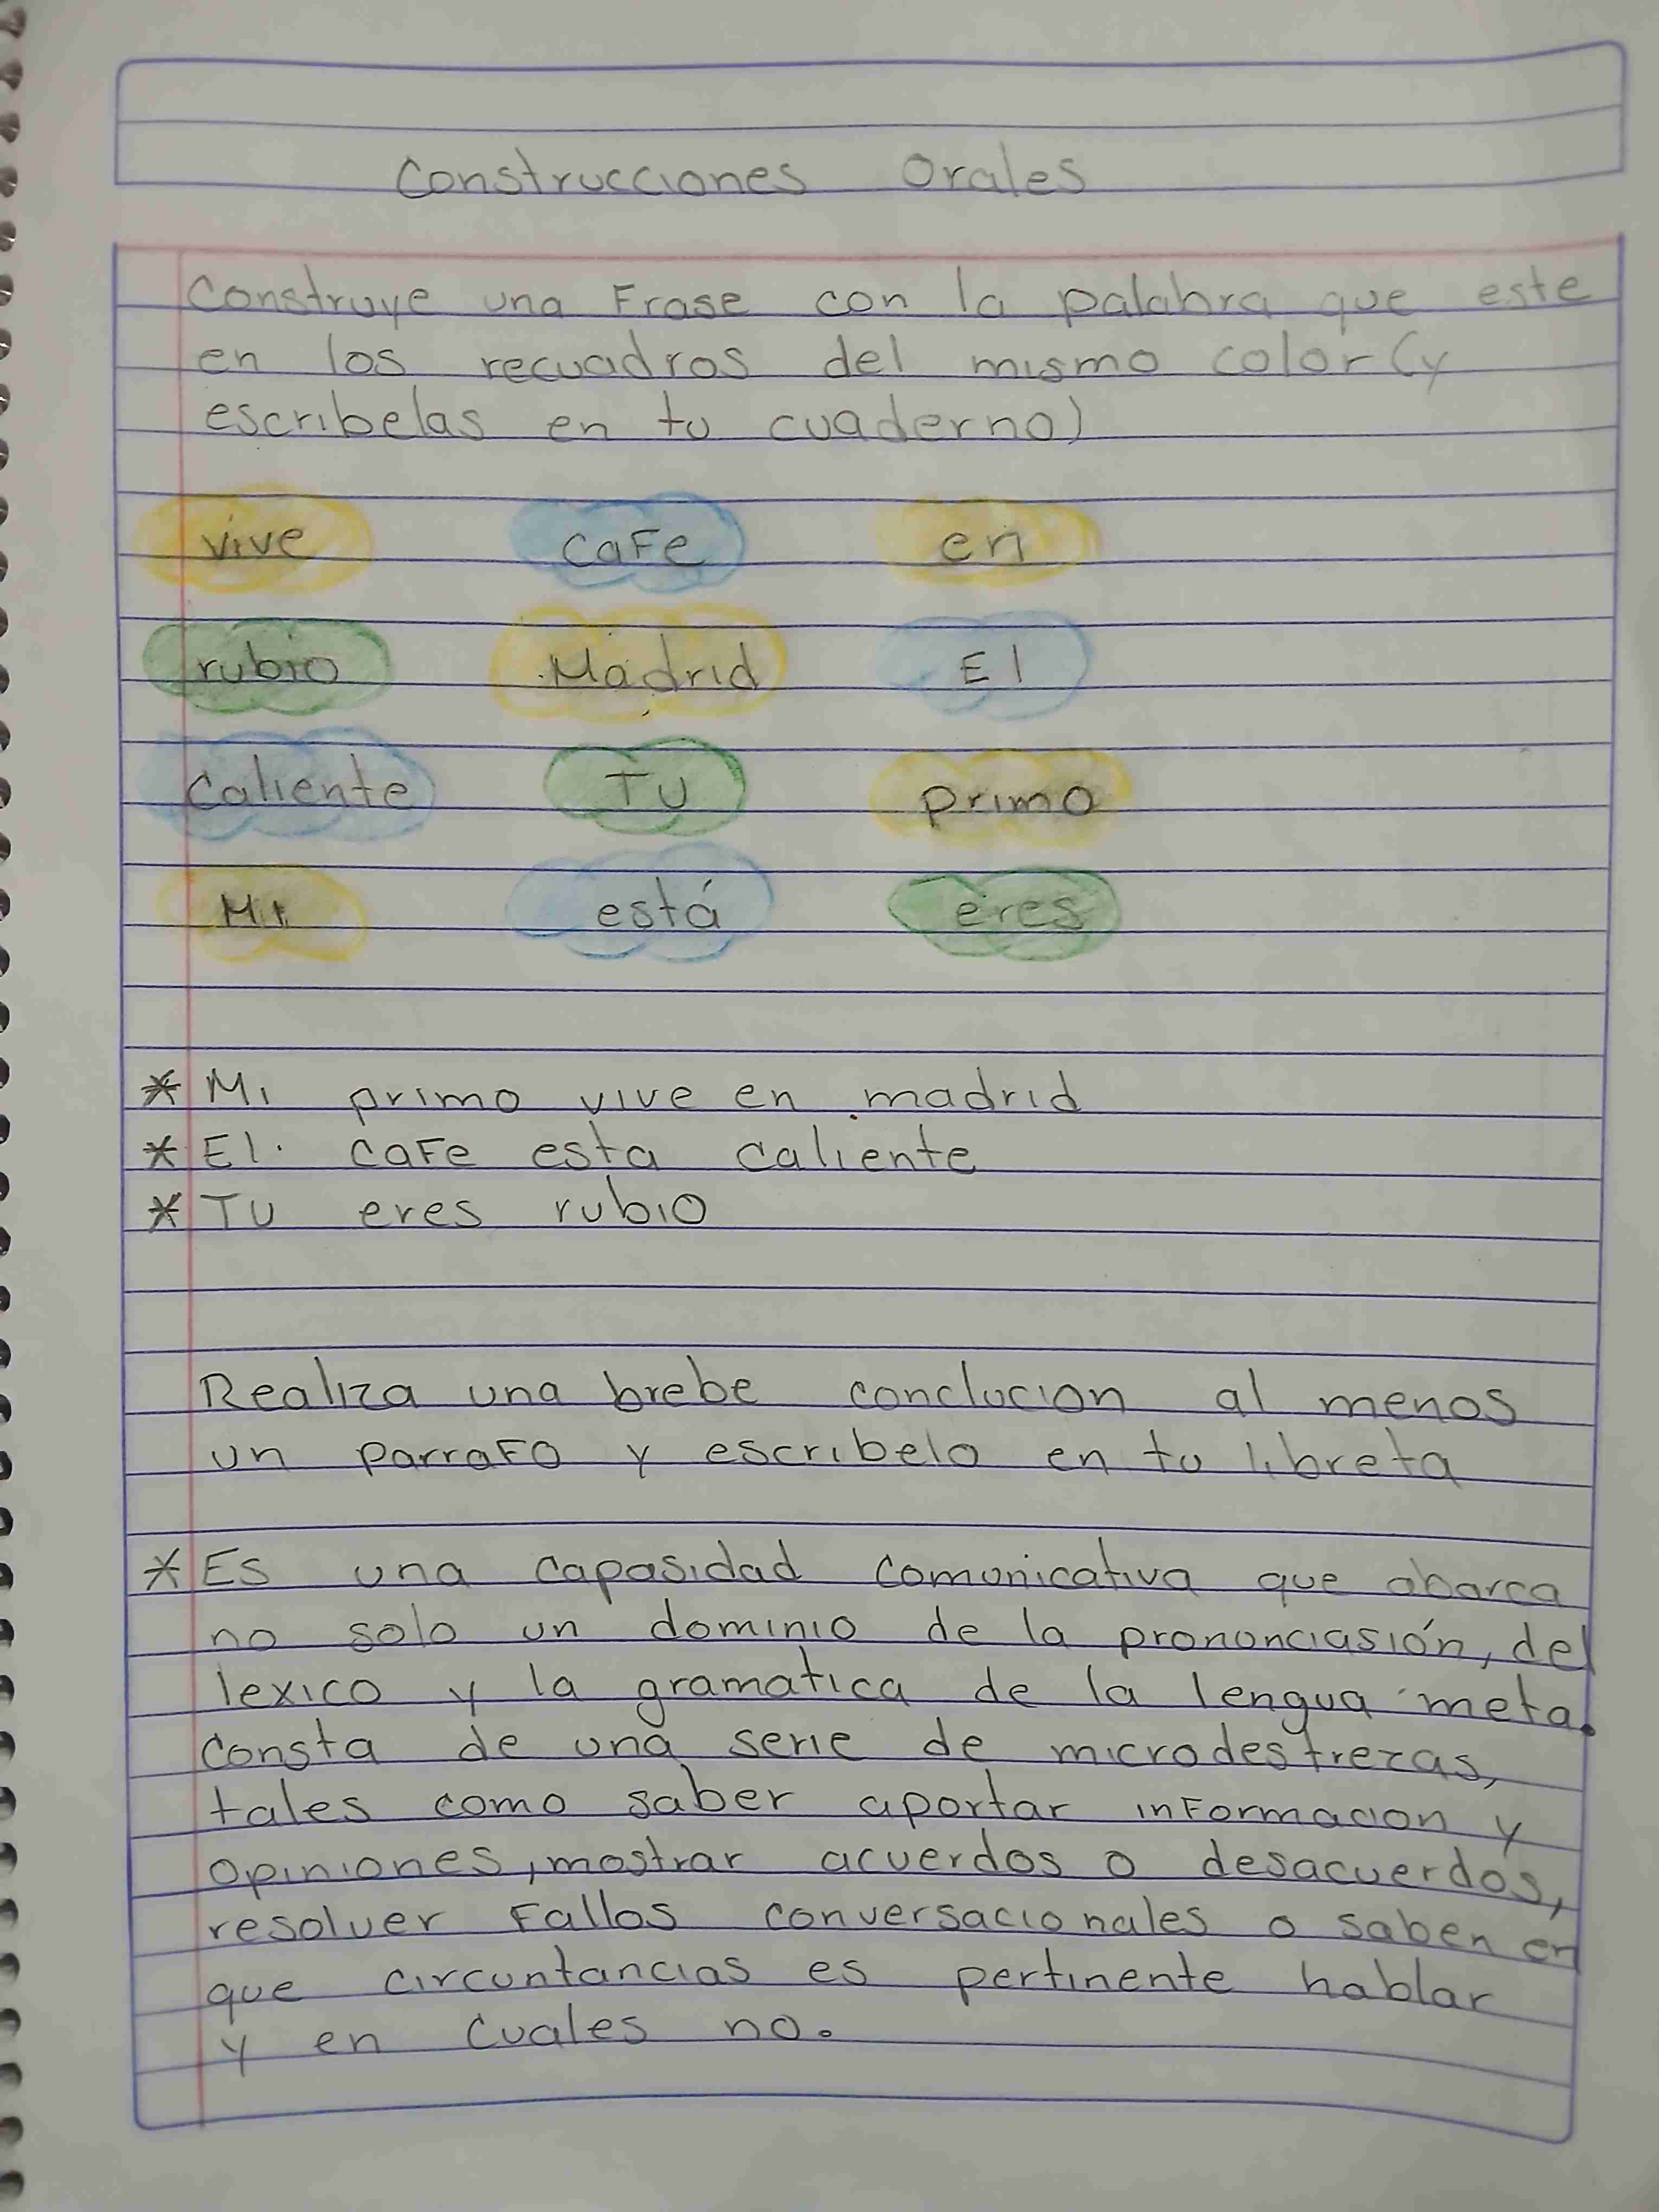 Construcciones Orales
Construye una Frase con la palabra que este
en los recuadros del mismo color (y
escribelas en tu cuaderno)
vive cafe en
rubio Madrid El
caliente Tu primo
Mi está eres
* Mi primo vive en madrid
* El cafe esta caliente
* Tu eres rubio
Realiza una brebe conclucion al menos
un parrafo y escribelo en tu libreta
* Es una capasidad comunicativa que abarca
no solo un dominio de la prononciasión, del
lexico y la gramatica de la lengua meta.
consta de una serie de microdestrezas,
tales como saber aportar informacion y
opiniones, mostrar acuerdos o desacuerdos,
resolver fallos conversacionales o saben en
que circuntancias es pertinente hablar
y en cuales no.